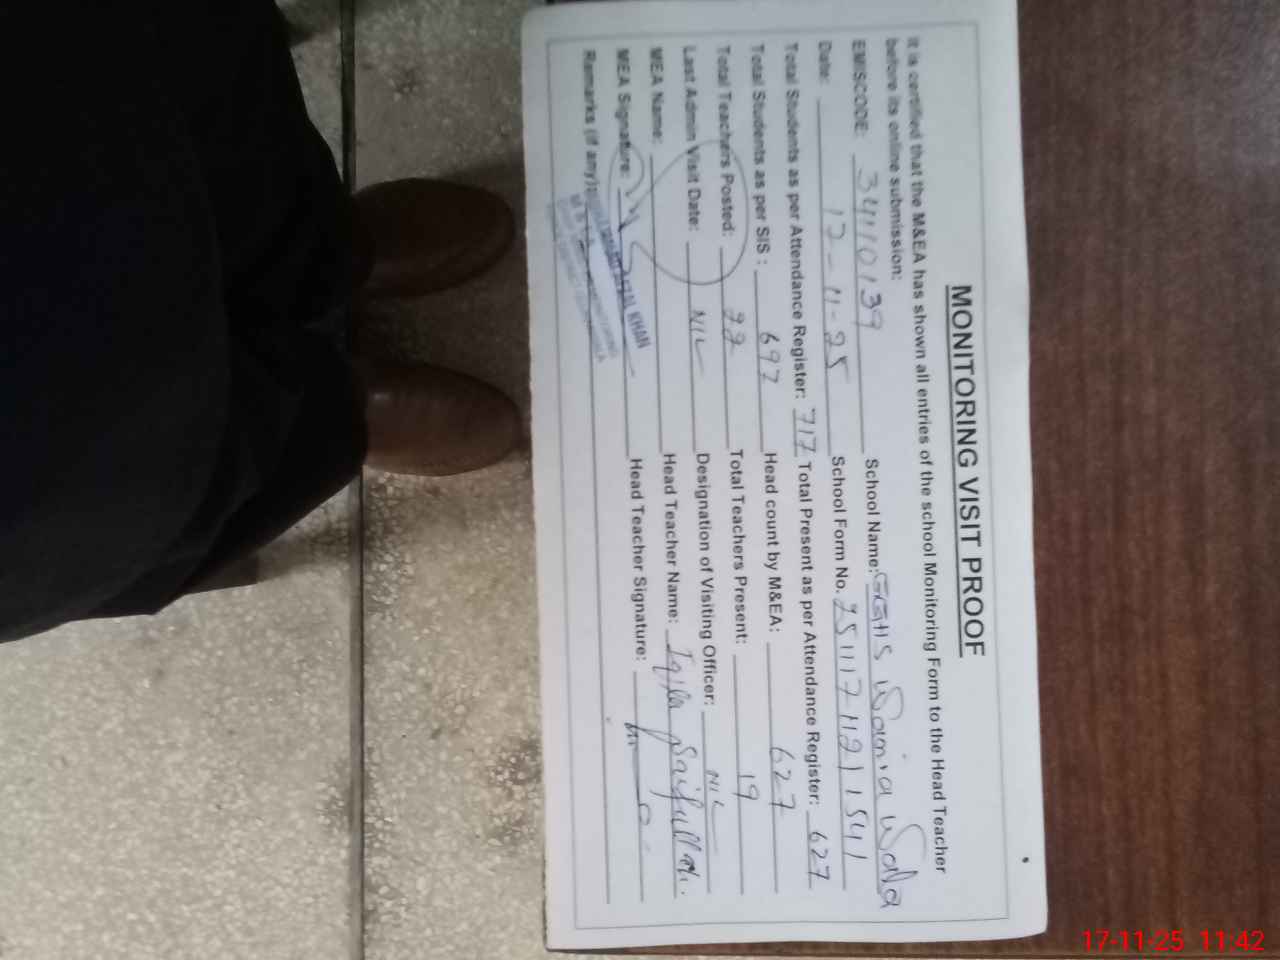 MONITORING VISIT PROOF
It is certified that the M&EA has shown all entries of the school Monitoring Form to the Head Teacher
before its online submission:
EMISCODE: 34110139 School Name: GGHS Warnia Wala
Date: 17-11-25 School Form No. 2511171121541
Total Students as per Attendance Register: 717 Total Present as per Attendance Register: 627
Total Students as per SIS : 697 Head count by M&EA: 627
Total Teachers Posted: 22 Total Teachers Present: 19
Last Admin Visit Date: NIL Designation of Visiting Officer: NIL
MEA Name: Head Teacher Name: Iqila Saifullah.
MEA Signature: Head Teacher Signature:
Remarks (if any):
KHAN
17-11-25 11:42